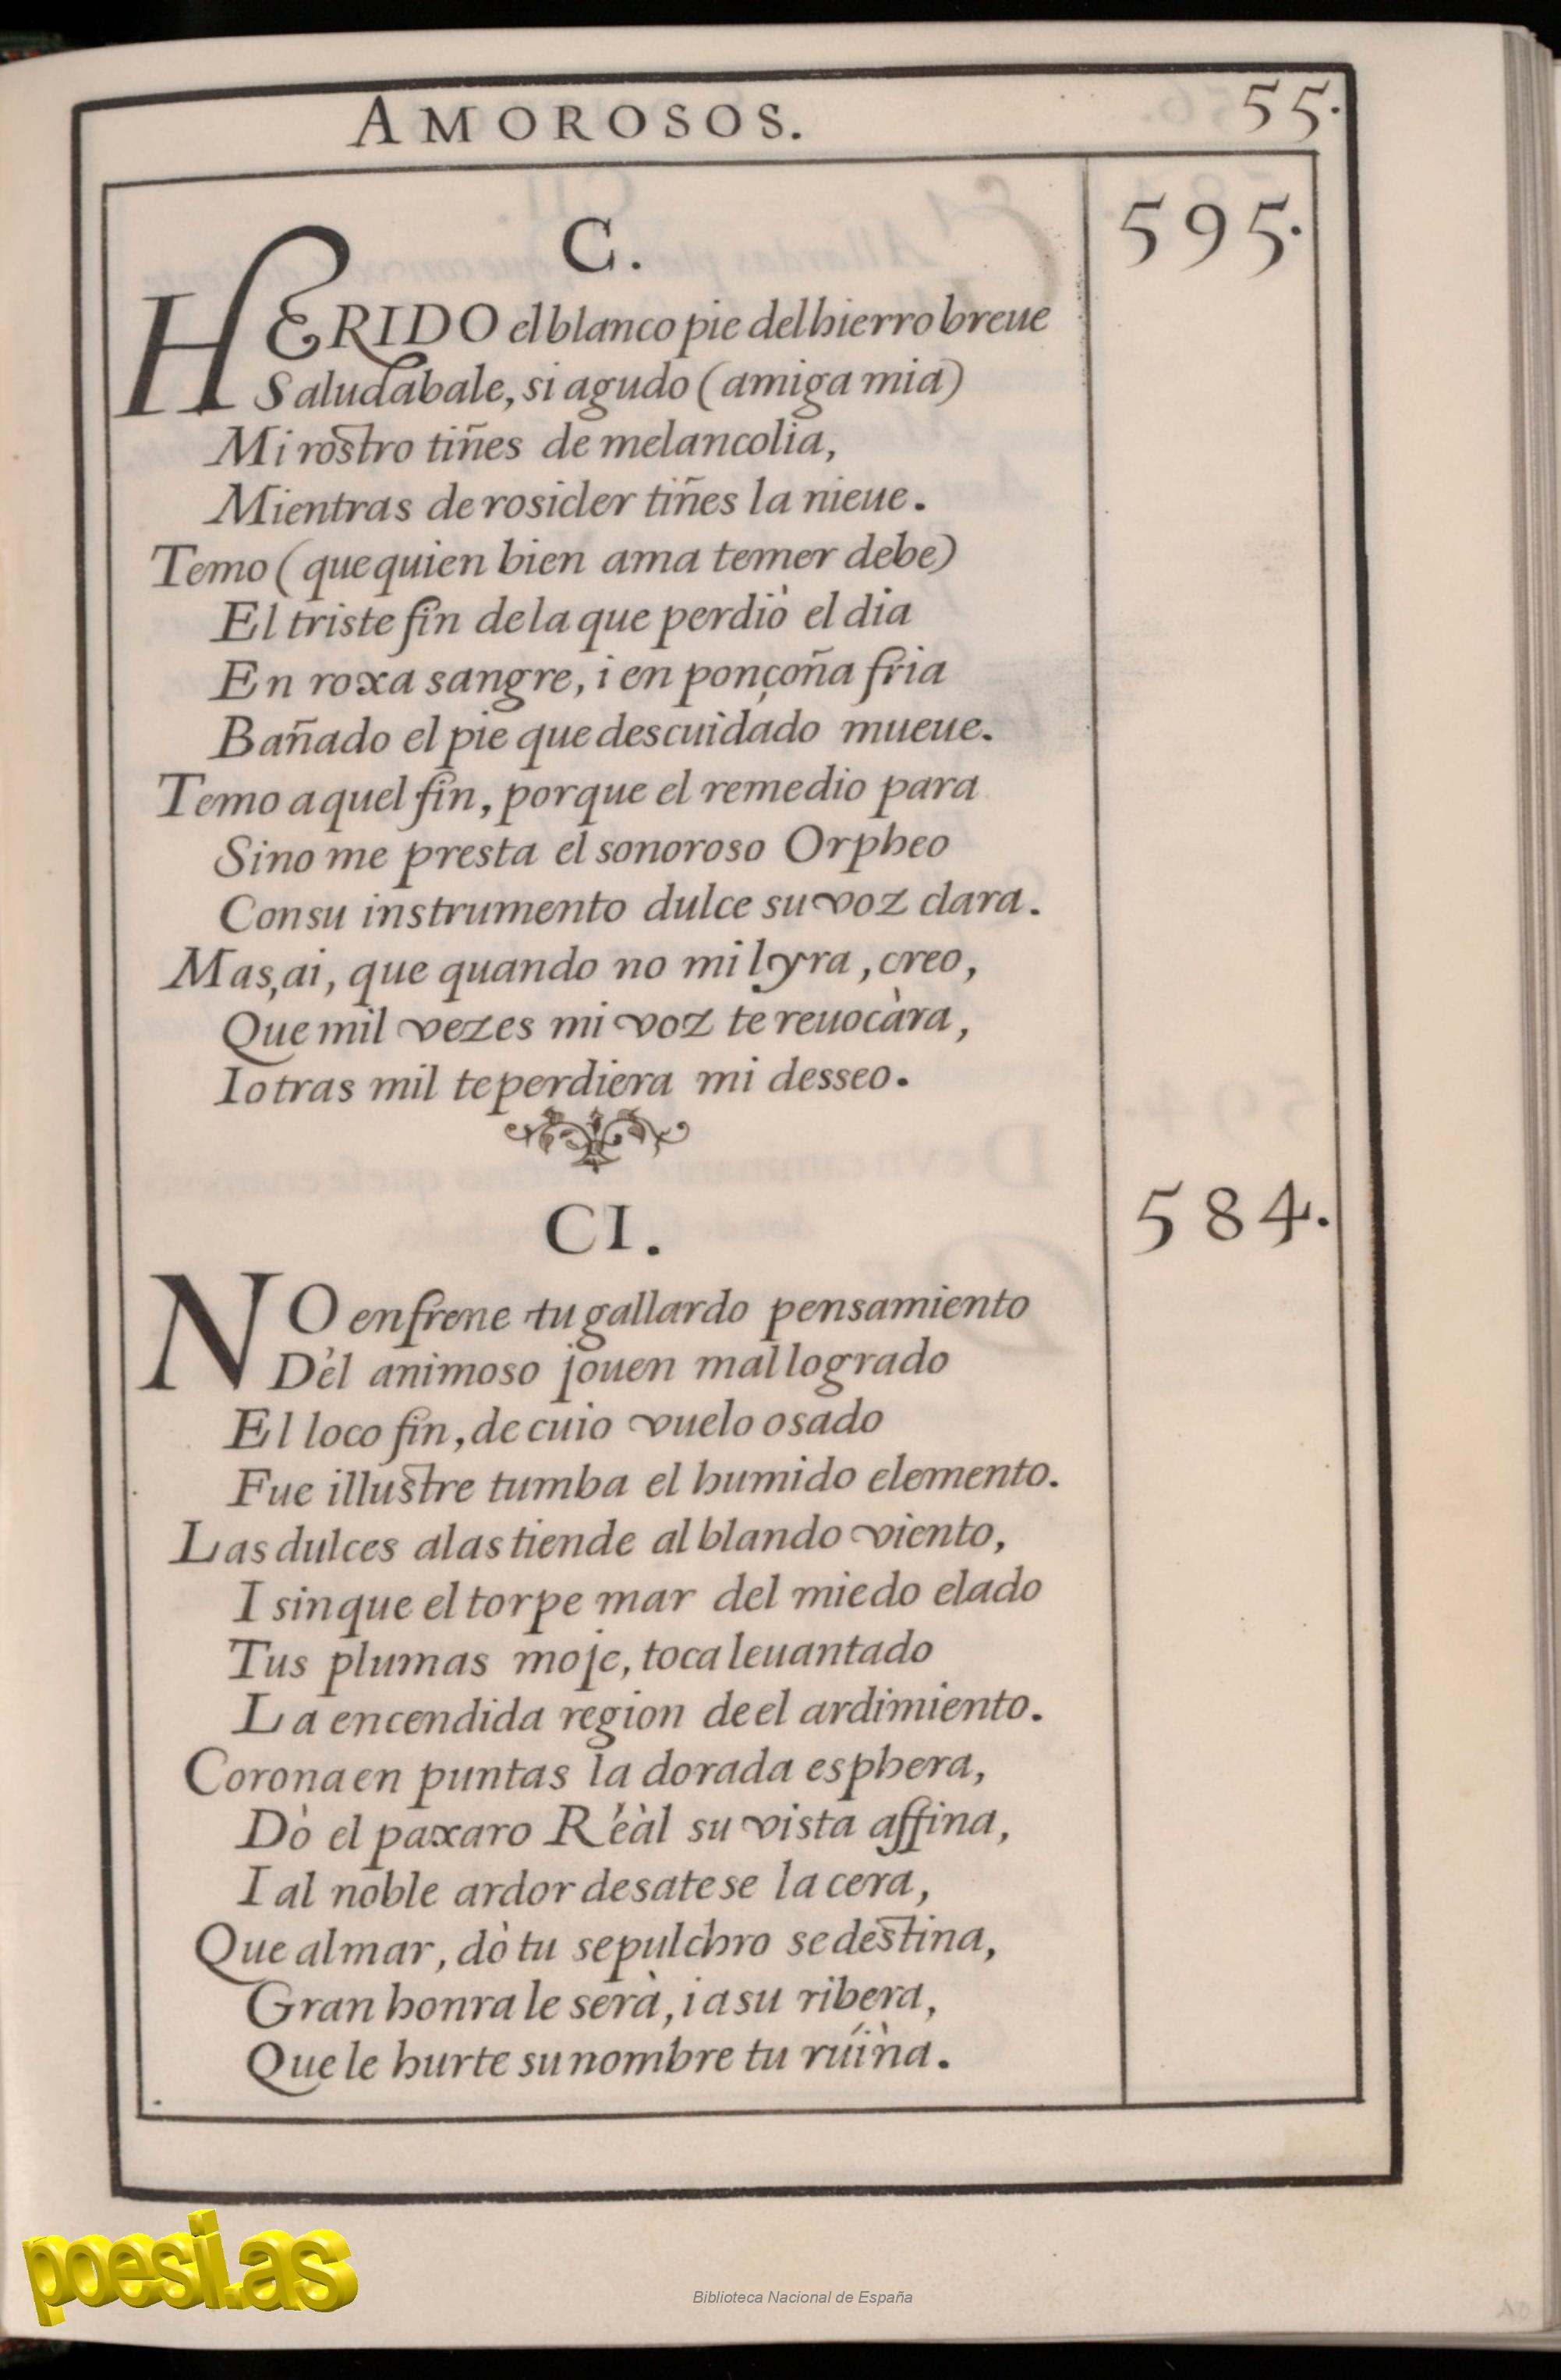 AMOROSOS.
55.
C.
595.
HERIDO el blanco pie del hierro breue
Saludabale, si agudo (amiga mia)
Mi rostro tiñes de melancolia,
Mientras de rosicler tiñes la nieue.
Temo (que quien bien ama temer debe)
El triste fin de la que perdiò el dia
En roxa sangre, i en ponçoña fria
Bañado el pie que descuidado mueue.
Temo aquel fin, porque el remedio para
Sino me presta el sonoroso Orpheo
Con su instrumento dulce su voz clara.
Mas, ai, que quando no mi lyra, creo,
Que mil vezes mi voz te reuocàra,
I otras mil te perdiera mi desseo.
CI.
584.
NO enfrene tu gallardo pensamiento
Dèl animoso jouen mal logrado
El loco fin, de cuio vuelo osado
Fue illustre tumba el humido elemento.
Las dulces alas tiende al blando viento,
I sin que el torpe mar del miedo elado
Tus plumas moje, toca leuantado
La encendida region de el ardimiento.
Corona en puntas la dorada esphera,
Dò el paxaro Réàl su vista affina,
I al noble ardor desatese la cera,
Que al mar, dò tu sepulchro se destina,
Gran honra le serà, i a su ribera,
Que le hurte su nombre tu rúìna.
poesi.as
Biblioteca Nacional de España